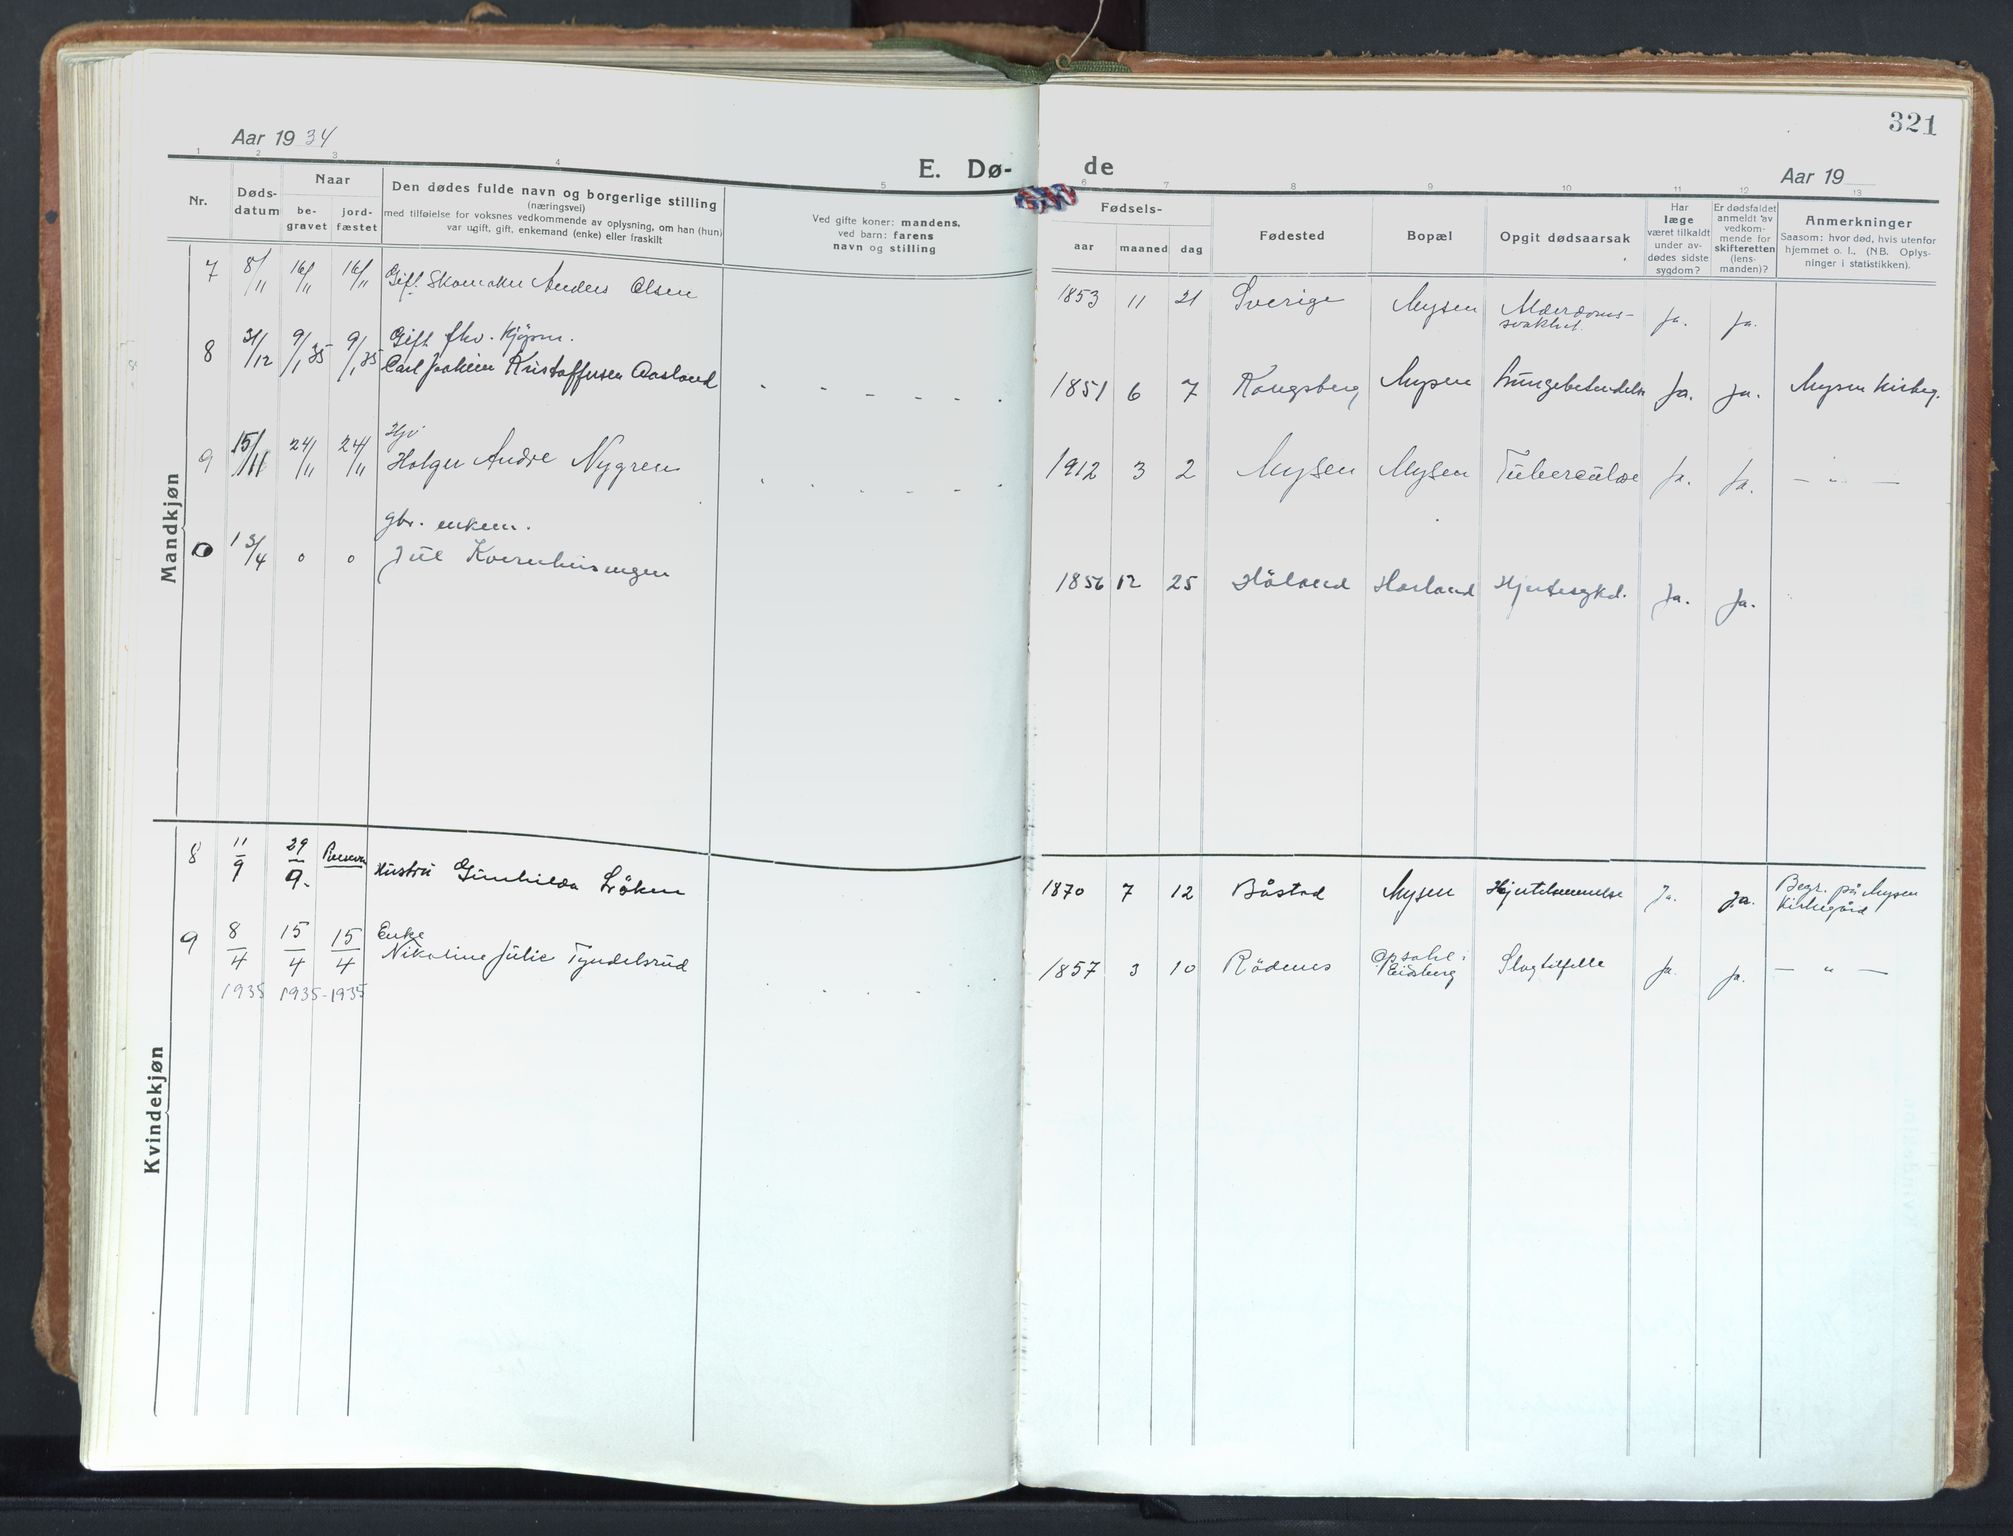 321
Aar 1934
E. Dø-
de
Aar 19
1 2 3 4 5 6 7 8 9 10 11 12 13
Nr.
Døds-
datum
Naar
be-
gravet
jord-
fæstet
Den dødes fulde navn og borgerlige stilling
(næringsvei)
med tilføielse for voksnes vedkommende av oplysning, om han (hun)
var ugift, gift, enkemand (enke) eller fraskilt
Ved gifte koner: mandens,
ved barn: farens
navn og stilling
Fødsels-
aar maaned dag
Fødested
Bopæl
Opgit dødsaarsak
Har
læge
været tilkaldt
under av-
dødes sidste
sygdom?
Er dødsfaldet
anmeldt av
vedkom-
mende for
skifteretten
(lens-
manden)?
Anmerkninger
Saasom: hvor død, hvis utenfor
hjemmet o. l., (NB. Oplys-
ninger i statistikken).
Mandkjøn
7 8/11 16/11 16/11 Gift. Skomaker Anders Olsen 1853 11 21 Sverige Mysen Alderdoms-
svakhet. ja. ja.
Gift fhv. kjøpm.
8 31/12 9/1 35 9/1 35 Carl Joakim Kristoffersen Aasland 1851 6 7 Kongsberg Mysen Lungebetendelse Ja. Ja. Mysen kirkeg.
9 15/11 24/11 24/11 Holger Andre Nygren 1912 3 2 Mysen Mysen Tuberculose Ja. Ja. — " —
gbr. enkem.
13/4 o o Jul Kvernhusengen 1856 12 25 Höland Harland Hjertesykd. Ja. Ja.
Kvindekjøn
8 11/9 29/9. Hustru Gunhilda Löken 1870 7 12 Båstad Mysen Hjertelammelse Ja. Ja. Begr. på Mysen
Kirkegård
Enke
9 8/4 15/4 15/4 Nikoline Julie Tyndelsrud 1857 3 10 Rödenes Opsahl i
Eidsberg Slagtilfelle Ja. Ja. — " —
1935 1935 - 1935